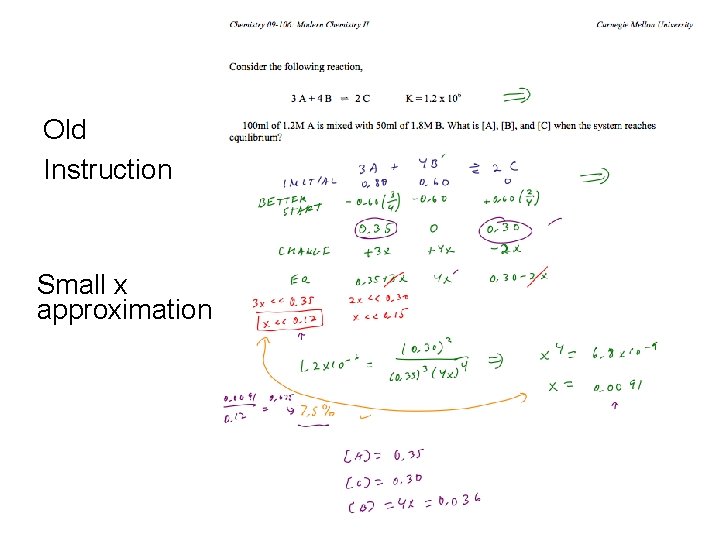 Chemistry 09-106 Modern Chemistry II Carnegie Mellon University
Consider the following reaction,
3 A + 4 B = 2 C K = 1.2 x 10⁶
Old
Instruction
100ml of 1.2M A is mixed with 50ml of 1.8M B. What is [A], [B], and [C] when the system reaches
equilibrium?
3A + 4B ⇌ 2C
INITIAL 0.80 0.60 0
BETTER START -0.60(3/4) -0.60 +0.60(2/4)
0.35 0 0.30
CHANGE +3x +4x -2x
Small x
approximation
EQ 0.35+3x 4x 0.30-2x
3x << 0.35 2x << 0.30
x << 0.12 x << 0.15
= (0.30)² / (0.35)³(4x)⁴ ⇒ x⁴ = 6.8x10⁻⁹
x = 0.0091
0.0091 / 0.12 = 0.075 7.5%
[A] = 0.35
[C] = 0.30
[B] = 4x = 0.036